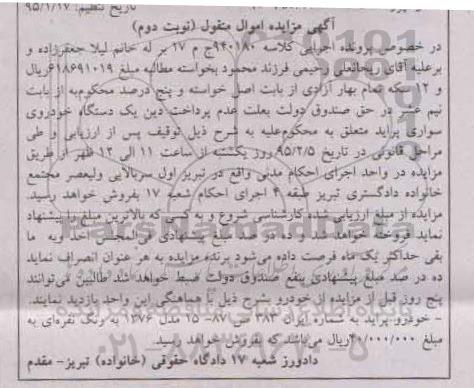 تاریخ تنظیم: ۹۵/۱/۱۷
آگهی مزایده اموال منقول (نوبت دوم)
در خصوص پرونده اجرایی کلاسه ۹۴۰۱۸۰ج م ۱۷ بر له خانم لیلا جعفرزاده و
برعلیه آقای ریحانعلی رحیمی فرزند محمود بخواسته مطالبه مبلغ ۶۱۸۶۹۱۰۱۹ریال
و ۱۲سکه تمام بهار آزادی از بابت اصل خواسته و پنج درصد محکوم‌به از بابت
نیم عشر در حق صندوق دولت بعلت عدم پرداخت دین یک دستگاه خودروی
سواری پراید متعلق به محکوم‌علیه به شرح ذیل توقیف پس از ارزیابی و طی
مراحل قانونی در تاریخ ۹۵/۲/۵ روز یکشنبه از ساعت ۱۱ الی ۱۳ ظهر از طریق
مزایده در واحد اجرای احکام مدنی واقع در تبریز اول سربالایی ولیعصر مجتمع
خانواده دادگستری تبریز طبقه ۴ اجرای احکام شعبه ۱۷ بفروش خواهد رسید.
مزایده از مبلغ ارزیابی شده کارشناسی شروع و به کسی که بالاترین مبلغ را پیشنهاد
نماید فروخته خواهد شد و ده در صد مبلغ پیشنهادی فی‌المجلس اخذ و به ما
بقی حداکثر یک ماه فرصت داده می‌شود برنده مزایده به هر عنوان انصراف نماید
ده در صد مبلغ پیشنهادی بنفع صندوق دولت ضبط خواهد شد طالبین می‌توانند
پنج روز قبل از مزایده از خودرو بشرح ذیل با هماهنگی این واحد بازدید نمایند.
- خودرو پراید به شماره ایران ۳۸۳ ص ۸۷- ۲۵ مدل ۱۳۷۶ به رنگ نقره‌ای به
مبلغ ۴۰/۰۰۰/۰۰۰ریال می‌باشد که بفروش خواهد رسید.
دادورز شعبه ۱۷ دادگاه حقوقی (خانواده) تبریز- مقدم